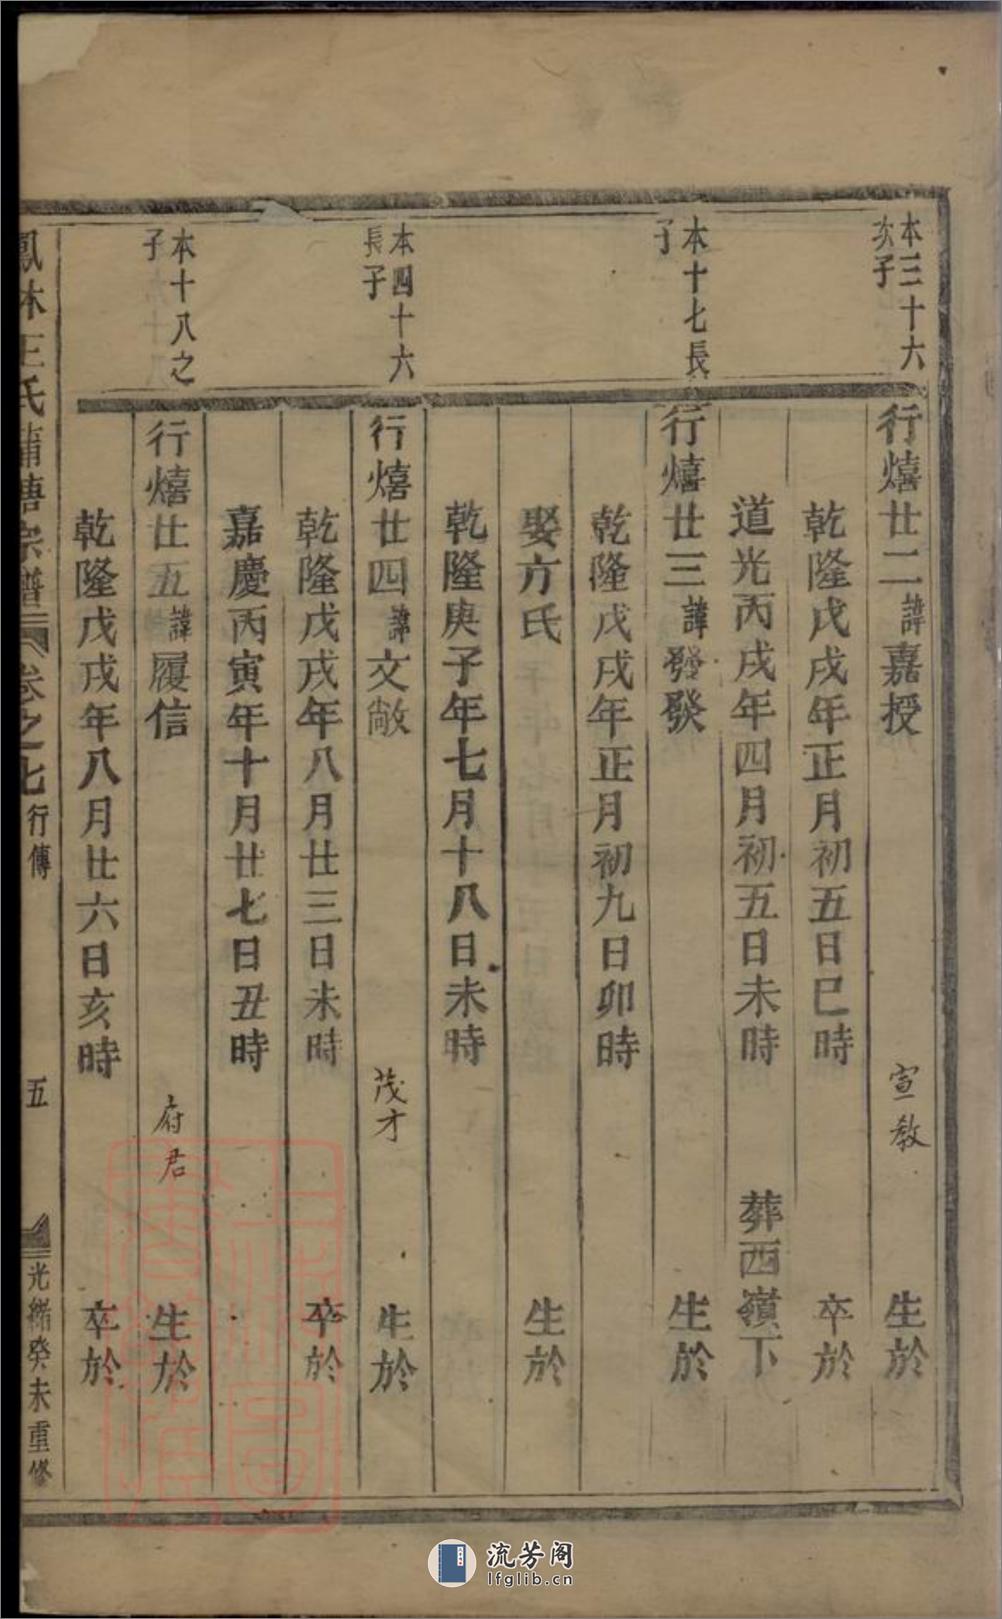 本三十六
次子
行熺廿二諱嘉授 宣教 生於
乾隆戊戌年正月初五日巳時 卒於
道光丙戌年四月初五日未時 葬西嶺下
本十七長
子
行熺廿三諱發發 生於
乾隆戊戌年正月初九日卯時
娶方氏 生於
乾隆庚子年七月十八日未時
本四十六
長子
行熺廿四諱文敞 茂才 生於
乾隆戊戌年八月廿三日未時 卒於
嘉慶丙寅年十月廿七日丑時
本十八之
子
行熺廿五諱履信 府君 生於
乾隆戊戌年八月廿六日亥時 卒於
鳳林王氏蒲塘宗譜 卷之七 行傳 五 光緒癸未重修
流芳阁
lfglib.cn